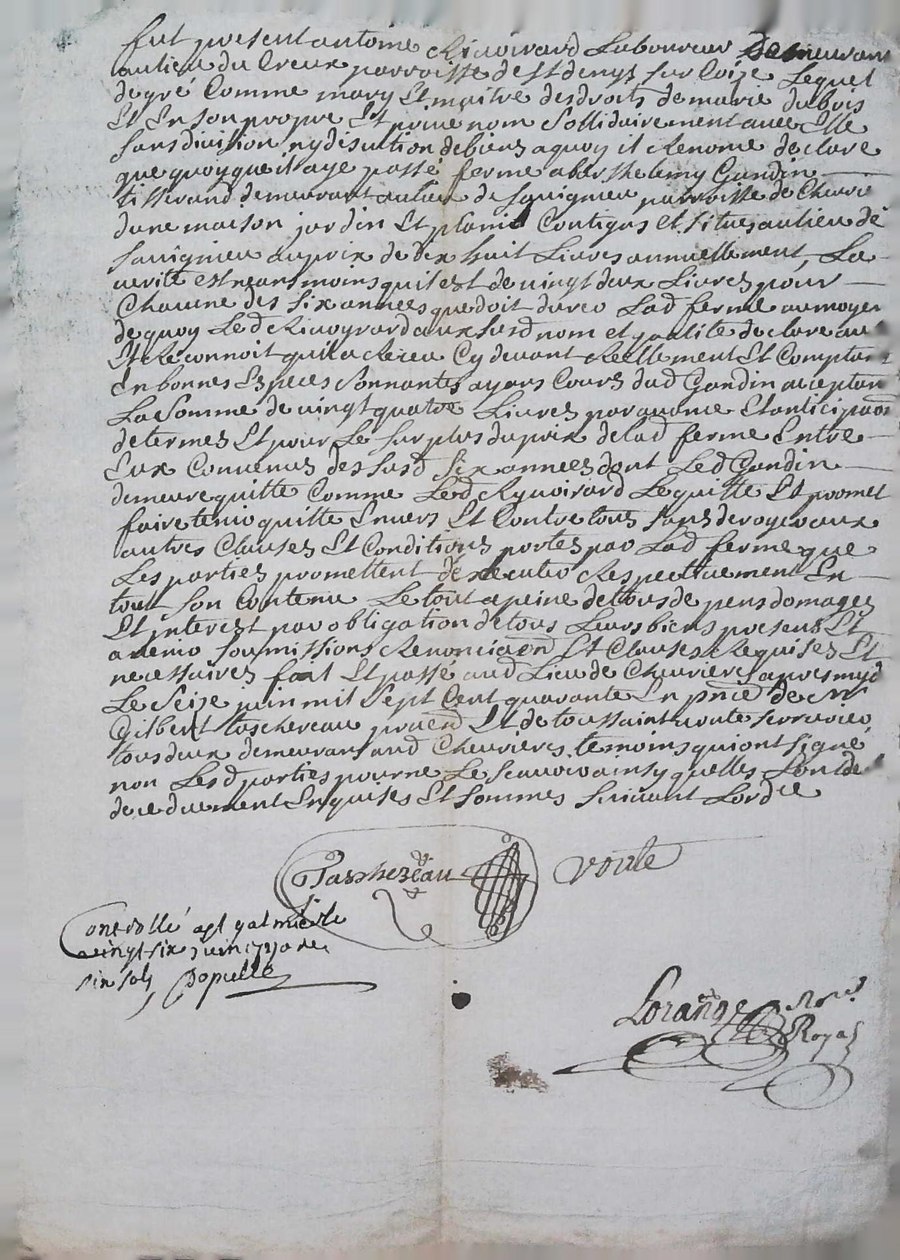 fut present antoine Rivoirard Laboureur Demeurant
au lieu du Creux parroisse de st denys sur Coize Lequel
de gré Comme mary Et maitre des droits de marie dubois
Et En son propre Et privé nom Sollidairement avec Elle
sans division ny discution de biens a quoy il Renonce declare
que quoy que il aye passé ferme a berthelemy Gandin
tisserand demeurant au lieu de Savignieu parroisse de Cheuri
dune maison jardin Et plamd Contigus et situes au lieu de
Savignieu au prix de dix huit Livres annuellement, La
verité est neansmoins quil est de vingt deux Livres pour
Chacune des six années que doit durer Lad ferme au moyen
de quoy Led Rivoyrard aux susd nom et qualité declare avoir
Et Reconnoit quil a Receu Cy devant Reellement Et Comptant
En bonnes Especes Sonnantes ayans Cours dud Gandin acceptant
La Somme de vingt quatre Livres par avance Et anticipaon
de termes Et pour Le surplus du prix de lad ferme Entre
Eux Convenus des susd six années dont Led Gandin
demeure quitte Comme Led Ryvoirard Le quitte Et promet
faire tenir quitte Envers Et Contre tous sans deroger aux
autres Clauses Et Conditions portes par Lad ferme que
Les parties promettent dexecuter Respectivement En
tout son Contenu Le tout a peine de tous depens domages
Et interest par obligation de tous Leurs biens presents Et
avenir soumissions Renonciaon Et Clauses Requises Et
necessaires fait Et passé aud Lieu de Chevrieres apres mydy
Le Seize juin mil Sept Cent quarante En pnce de Mr
Gilbert taschereau praen Et de toussaint voute serrurier
tous deux demeurans aud Chevrières, temoins qui ont signé
non Lesd parties pour ne Le Scavoir ainsy quelles L'ont de
claré duement Enquises Et sommes suivant Lordce
Taschereau voute
Controllé a st galmier le
vingt six juin 1740 Rc
six sols Populle
Lorange Nore
Royal